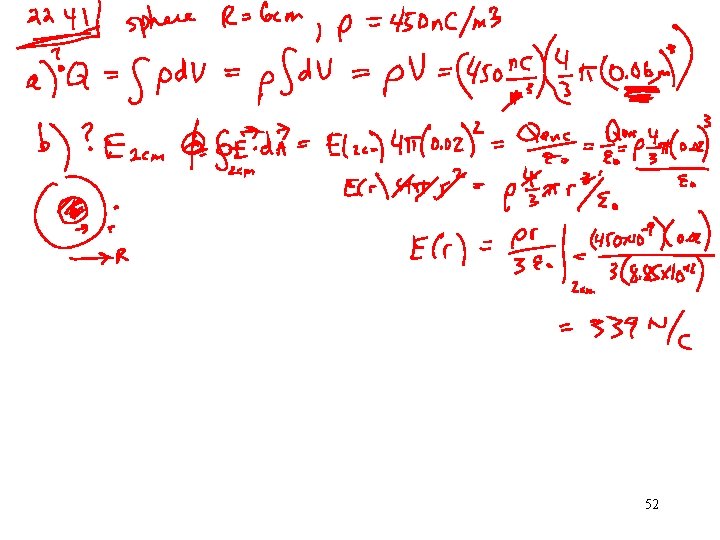 22 41 sphere R = 6cm, ρ = 450 nC/m3
a) ? Q = ∫ρdV = ρ∫dV = ρV = (450 nC/m³)(4/3 π(0.06m)³)
b) ? E 2cm Φ = ∮2cm E⃗·dA⃗ = E(2cm) 4π(0.02)² = Qenc/ε₀ = Qenc/ε₀ = ρ 4/3 π(0.02)³/ε₀
E(r) 4πr² = ρ 4/3 π r³/ε₀
r
R
E(r) = ρr/3ε₀ |2cm = (450x10⁻⁹)(0.02)/3(8.85x10⁻¹²)
= 339 N/C
52